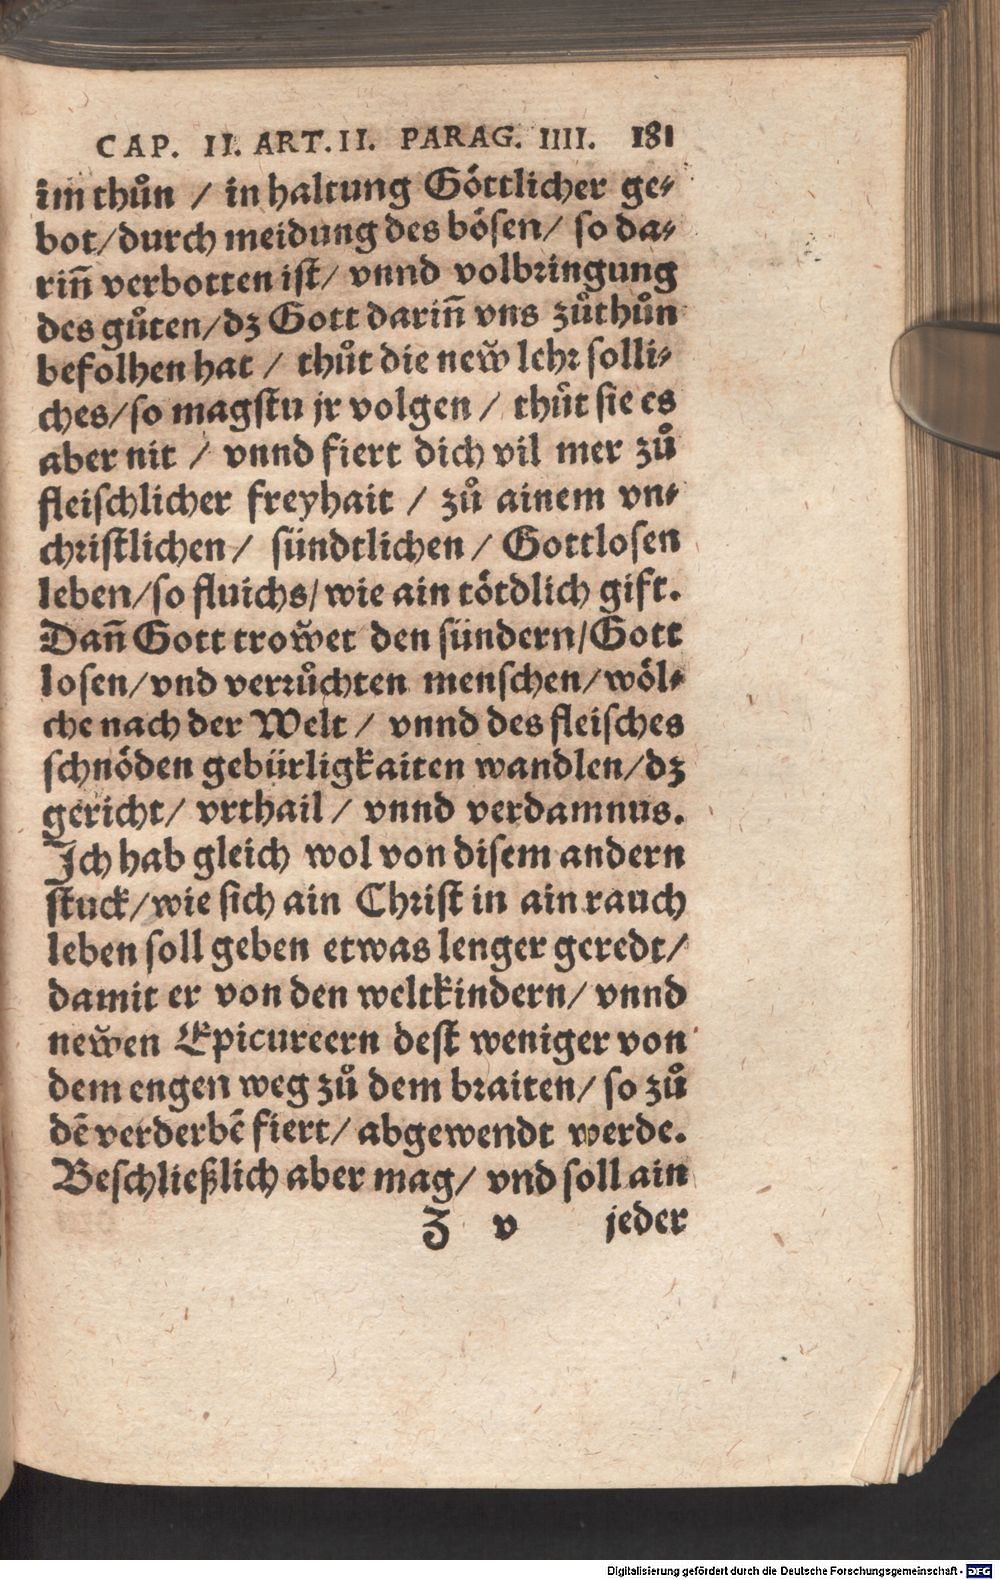 CAP. II. ART. II. PARAG. IIII. 181
im thůn / in haltung Göttlicher ge⸗
bot/durch meidung des bösen/ so da⸗
rin̄ verbotten ist/ vnnd volbringung
des gůten/dz Gott darin̄ vns zůthůn
befolhen hat / thůt die new̆ lehr solli⸗
ches/so magstu jr volgen / thůt sie es
aber nit / vnnd fiert dich vil mer zů
fleischlicher freyhait / zů ainem vn⸗
christlichen/ sündtlichen / Gottlosen
leben/so fluichs/wie ain tötdlich gift.
Dan̄ Gott trow̆et den sündern/Gott
losen/vnd verrůchten menschen/wöl⸗
che nach der Welt / vnnd des fleisches
schnöden gebürligkaiten wandlen/dz
gericht/ vrthail / vnnd verdamnus.
Ich hab gleich wol von disem andern
stuck/wie sich ain Christ in ain rauch
leben soll geben etwas lenger geredt/
damit er von den weltkindern/ vnnd
new̆en Epicureern dest weniger von
dem engen weg zů dem braiten/ so zů
dē verderbē fiert/ abgewendt werde.
Beschließlich aber mag/ vnd soll ain
Z v jeder
Digitalisierung gefördert durch die Deutsche Forschungsgemeinschaft - DFG